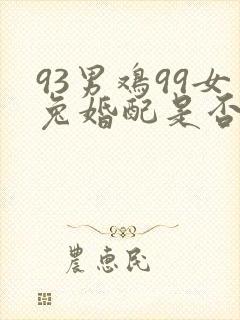 93男鸡99女
兔婚配是否
農惠民